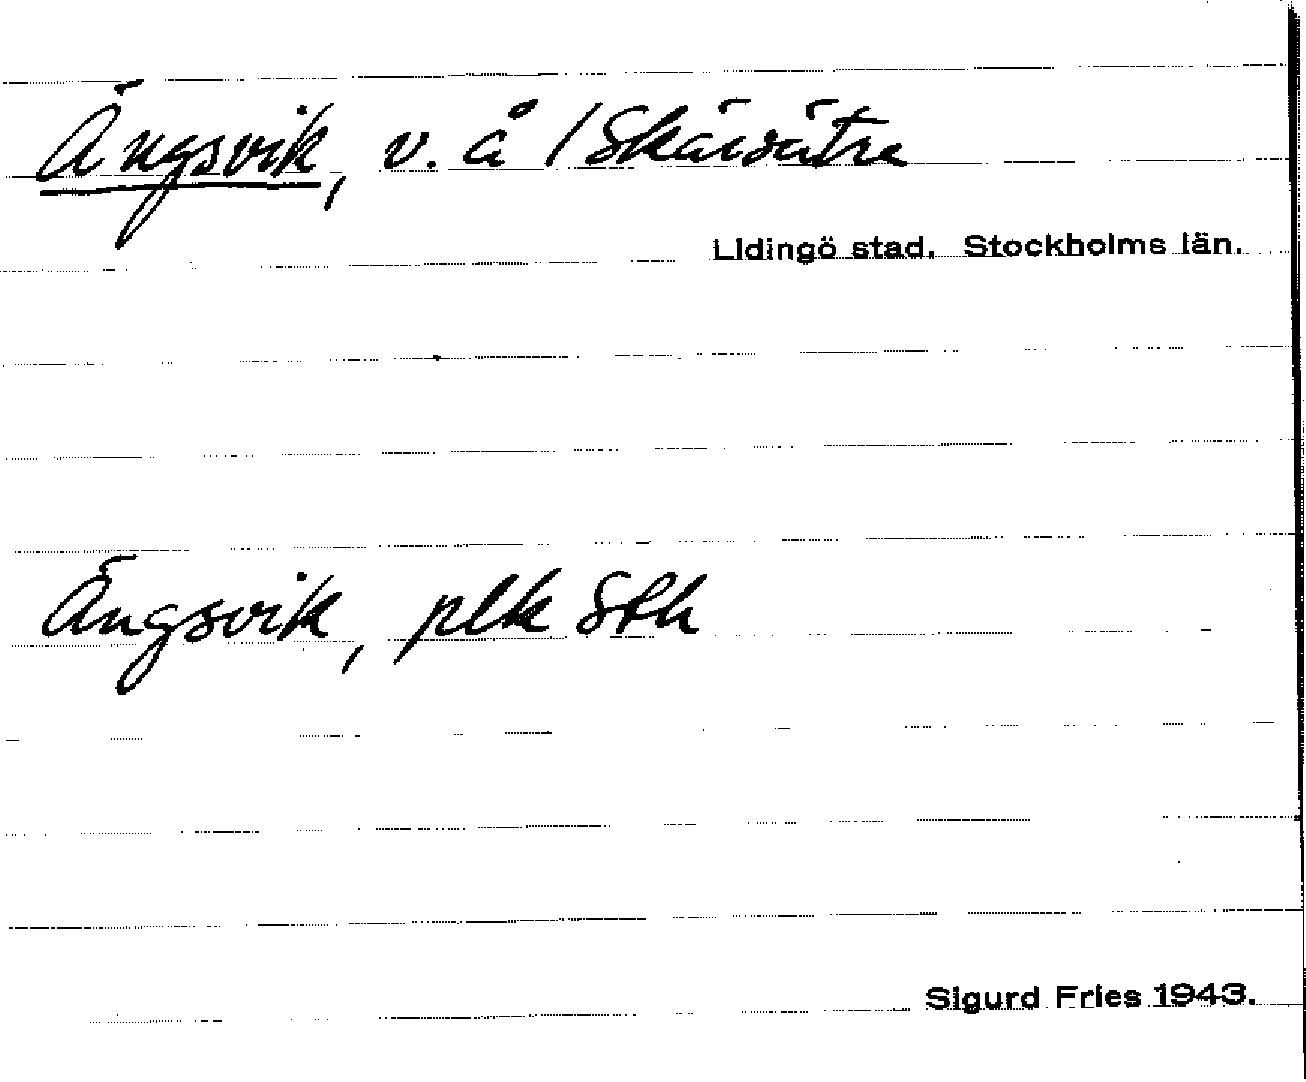 Ängsvik, v. å / Skärsätra
Lidingö stad. Stockholms län.
Ängsvik, plk Sth
Sigurd Fries 1943.